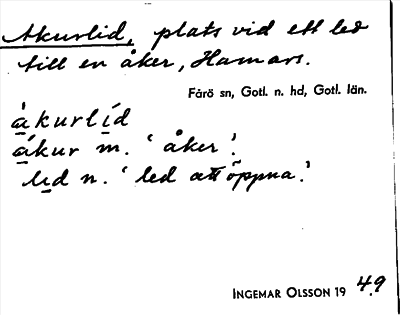 Akurlid, plats vid ett led
till en åker, Hamars.
Fårö sn, Gotl. n. hd, Gotl. län.
ákurlíd
ákur m. ‘åker’.
lid n. ‘led att öppna.’
INGEMAR OLSSON 19 49